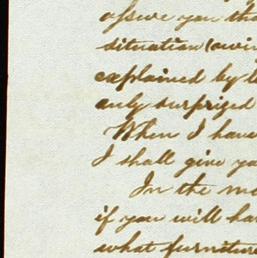 assure you tha
situation (owin
explained by t
only surprized
When I have
I shall give yo
In the me
if you will ha
what furniture